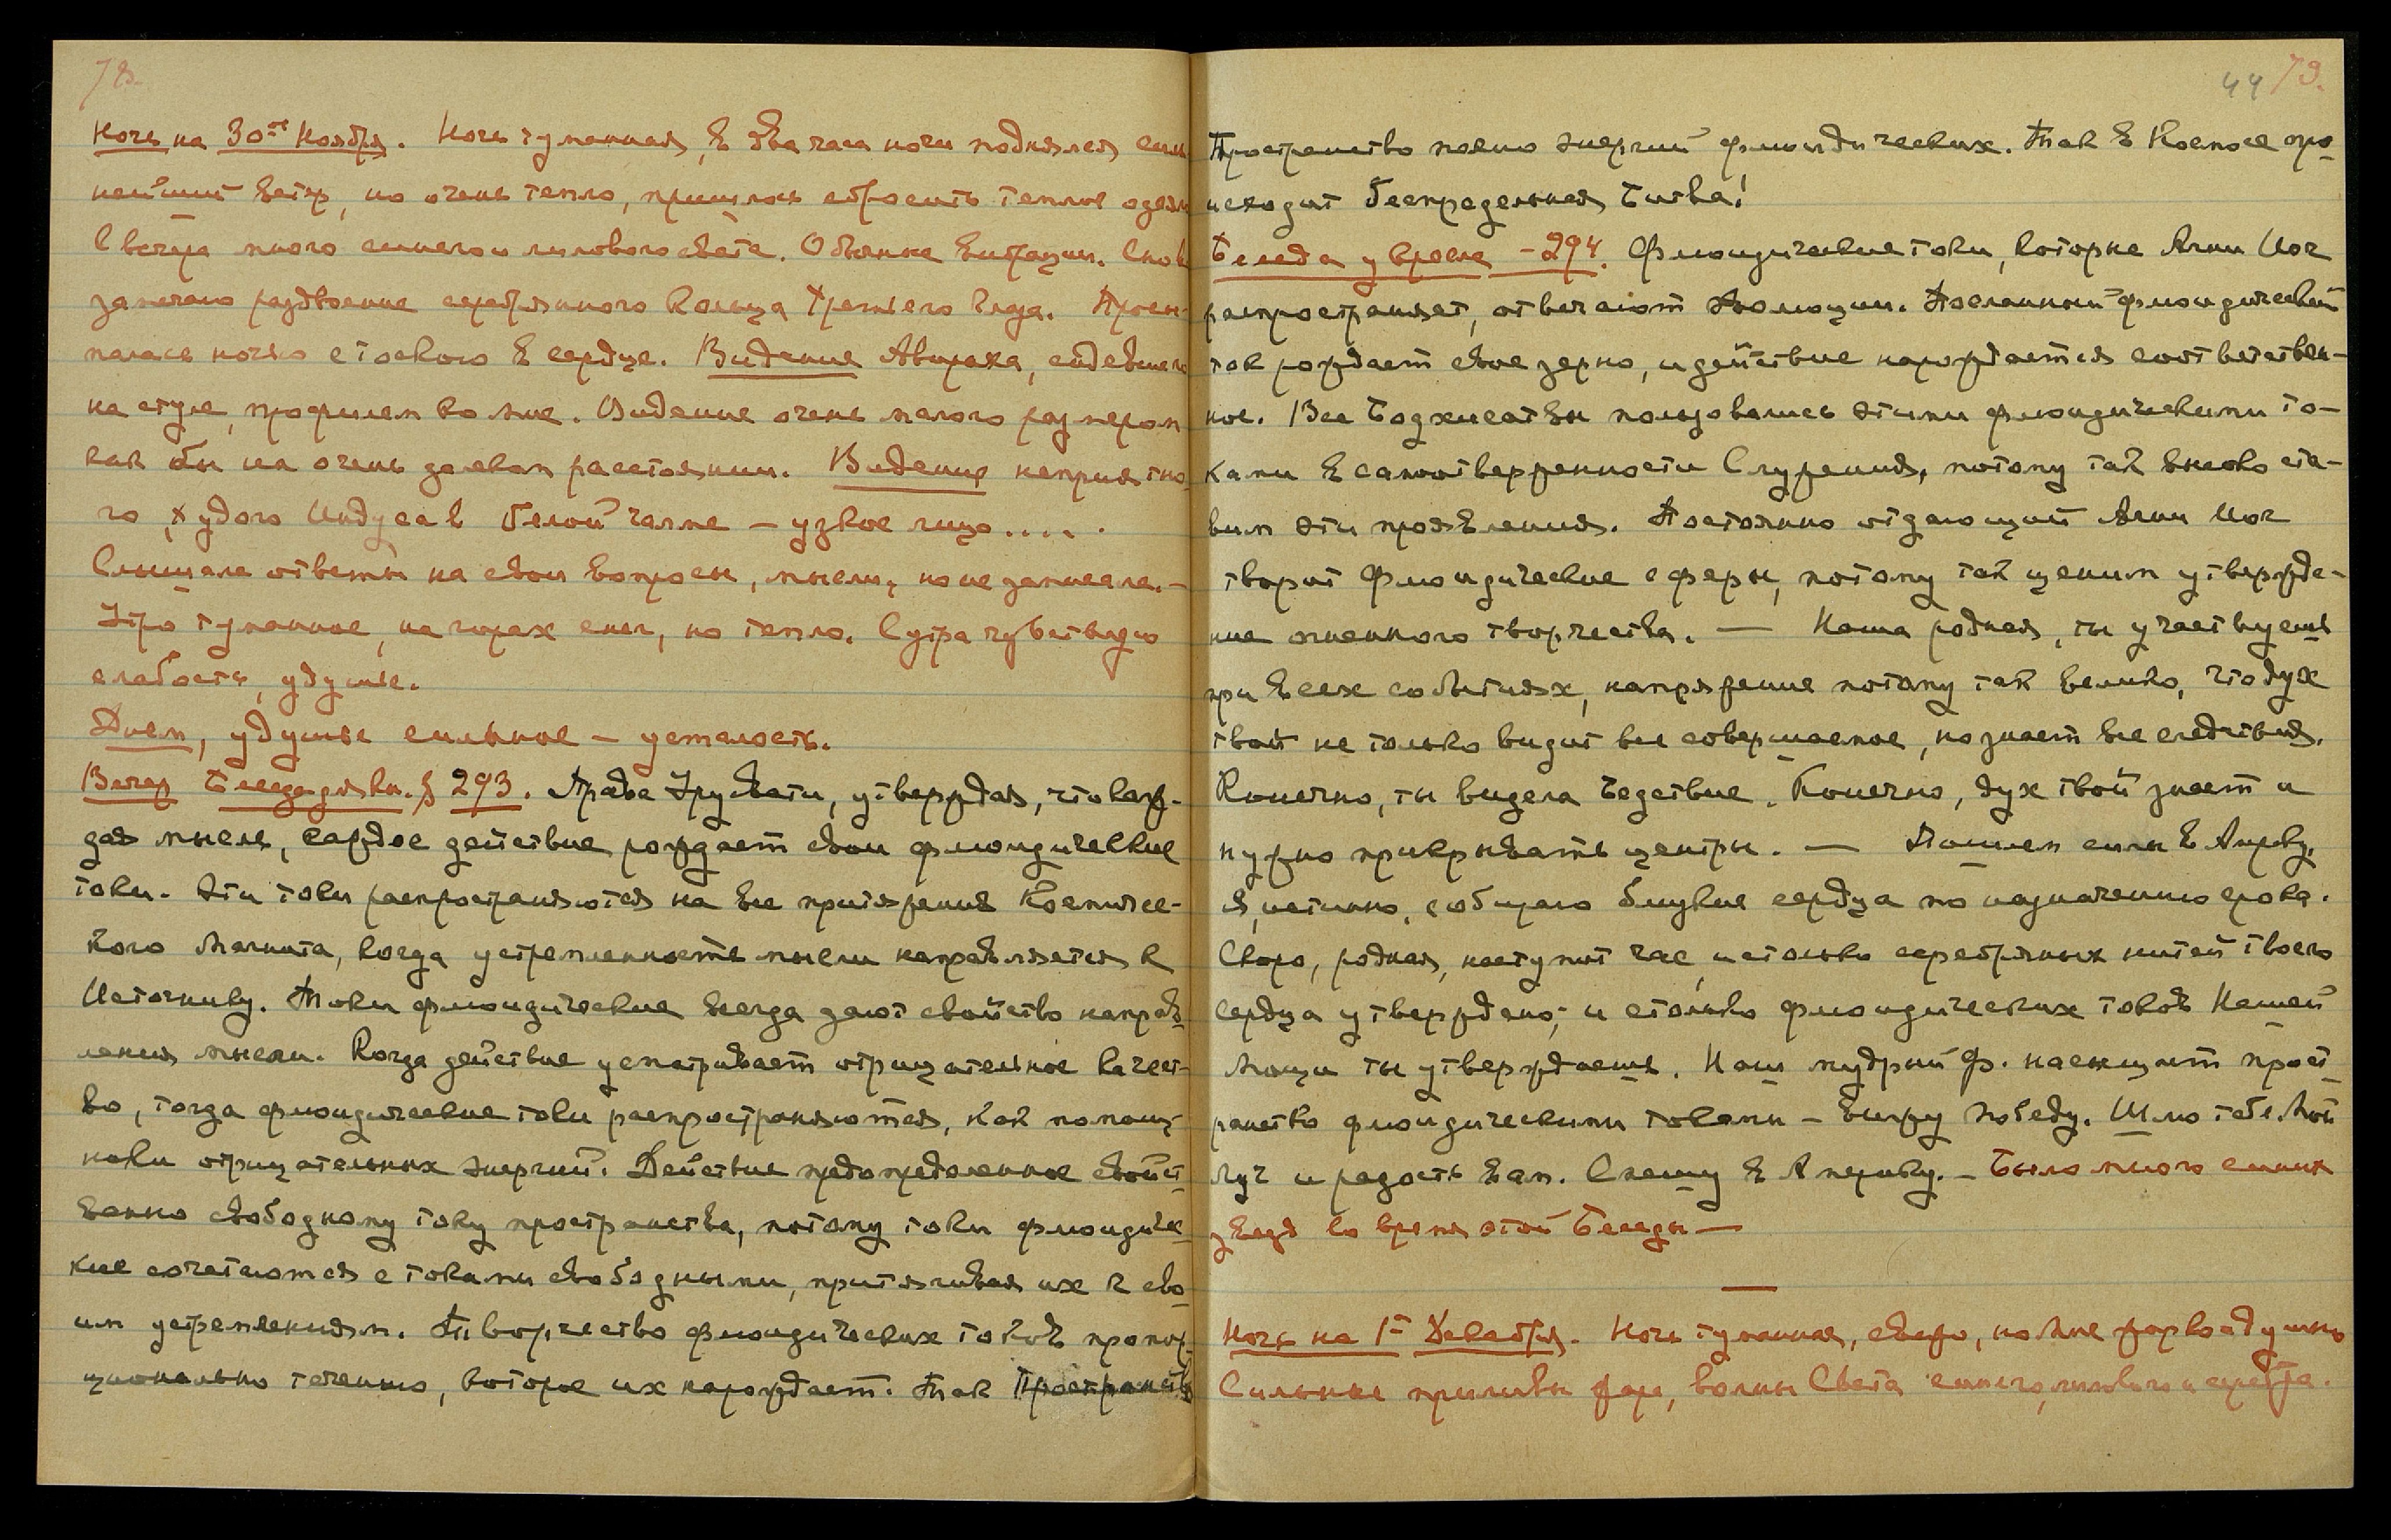 78.
Ночь на 30ое Ноября. Ночь туманная, в два часа ночи поднялся силь
нейший ветер, но очень тепло, пришлось сбросить теплое одеял
С вечера много синего и лилового света. Обычные вибрации. Снов
замечаю раздвоение серебрянного Кольца Третьего Глаза. Просы-
палась ночью с тоскою в сердце. Видение Авираха, сидевшего
на стуле, профилем ко мне. Видение очень малого размером
как бы на очень далеком расстоянии. Видение неприятно
го, худого Индуса в белой чалме – узкое лицо....
Слышала ответы на свои вопросы, мысли, но не записала. –
Утро туманное, на горах снег, но тепло. С утра чувствую
слабость, удушье.
Днем, удушье сильное – усталость.
Вечер Беседа для кн. § 293. Права Урусвати, утверждая, что каж-
дая мысль, каждое действие рождает свои флюидические
токи. Эти токи распространяются на все притяжения Космичес-
кого Магнита, когда устремленность мысли направляется к
Источнику. Токи флюидические всегда дают свойство направ-
ления мысли. Когда действие усматривает отрицательное качест-
во, тогда флюидические токи распространяются, как помощ-
ники отрицательных энергий. Действие предопределенное свойст-
венно свободному току пространства, потому токи флюидичес
кие сочетаются с токами свободными, притягивая их к сво-
им устремлениям. Творчество флюидических токов пропор-
ционально течению, которое их нарождает. Так Пространство
44 79.
Пространство полно энергий флюидических. Так в Космосе про-
исходит беспредельная Битва!
Беседа у кресла – 294. Флюидические токи, которые Агни Йог
распространяет, отвечают эволюции. Посланный флюидический
ток рождает свое зерно, и действие нарождается соответствен-
ное. Все Бодхисатвы пользовались этими флюидическими то-
ками в самоотверженности Служения, потому так высоко ста-
вим эти проявления. Постоянно отдающий Агни Йог
творит флюидические сферы, потому так ценим утвержде-
ние огненного творчества. — Наша родная, ты участвуешь
при всех событиях, напряжение потому так велико, что дух
твой не только видит все совершаемое, но знает все следствия.
Конечно, ты видела бедствие. Конечно, дух твой знает и
нужно прикрывать центры. — Пошлем силы в Америку,
Я, истинно, сообщаю близкие сердца по назначению срока.
Скоро, родная, наступит час, и столько серебряных нитей твоего
сердца утверждено; и столько флюидических токов Нашей
Мощи ты утверждаешь. Наш мудрый Ф. насыщает прост-
ранство флюидическими токами – вижу победу. Шлю тебе Мой
Луч и радость вам. Спешу в Америку. – Было много синих
звезд во время этой Беседы —
Ночь на 1ое Декабря. Ночь туманная, свежо, но мне жарко и душно
Сильные приливы жара, волны Света синего, лилового и серебра.